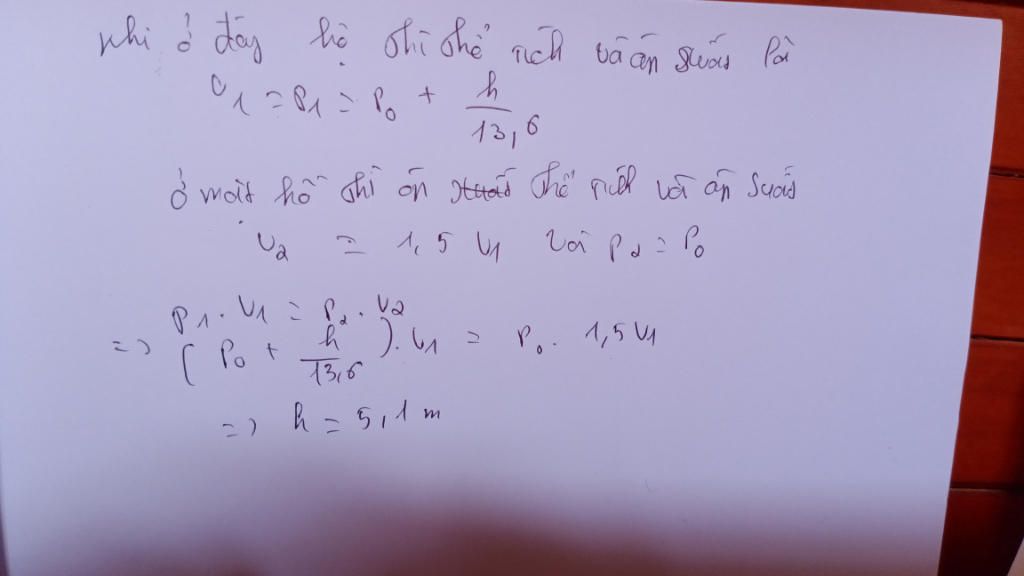 khi ở đáy hồ thì thể tích và áp suất là
V1 = P1 = P0 + h/13,6
ở mặt hồ thì áp suất thể tích và áp suất
V2 = 1,5 V1 và P2 = P0
P1 . V1 = P2 . V2
=> (P0 + h/13,6) . V1 = P0 . 1,5 V1
=> h = 5,1 m